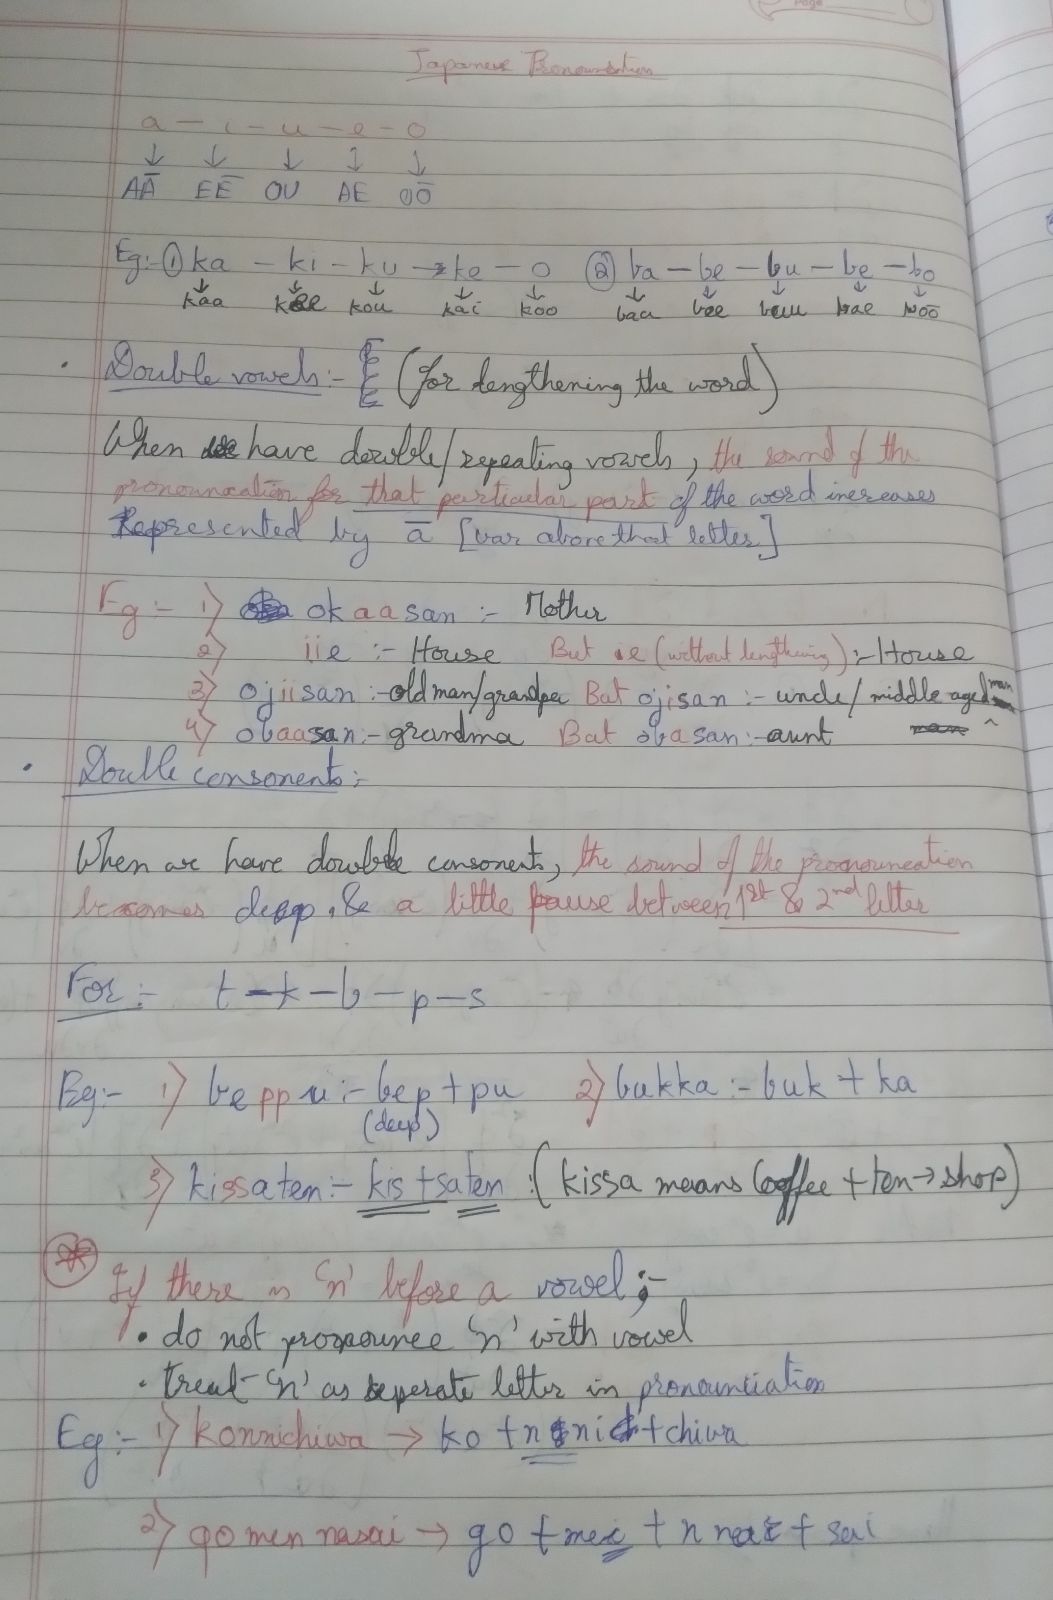 Page
Japanese Pronounciation
a - i - u - e - o
↓ ↓ ↓ ↓ ↓
AĀ EĒ OU AE OŌ
Eg:- ① ka - ki - ku - ke - o ② ba - be - bu - be - bo
↓ ↓ ↓ ↓ ↓ ↓ ↓ ↓ ↓ ↓
kaa kou kai koo baa bee bae
Double vowels:- (for lengthening the word)
When we have double/repeating vowels, the sound of the
pronounciation for that particular part of the word increases
Represented by ā [bar above that letter]
Eg:- 1) okaasan :- Mother
2) iie :- House But ie (without lengthening) :- House
3) ojiisan :- old man/grandpa But ojisan :- uncle/middle aged man
4) obaasan :- grandma But obasan :- aunt
Double consonents:-
When we have double consonents, the sound of the pronounciation
becomes deep & a little pause between 1st & 2nd letter
For:- t - k - b - p - s
Eg:- 1) beppu :- bep + pu 2) bukka :- buk + ka
(deep)
3) kissaten :- kis + saten :(kissa means Coffee + ten → shop)
If there is 'n' before a vowel ;-
• do not pronounce 'n' with vowel
• treat 'n' as seperate letter in pronounciation
Eg:- 1) konnichiwa → ko + n ni + chiwa
2) gomen nasai → go + me + n na + sai